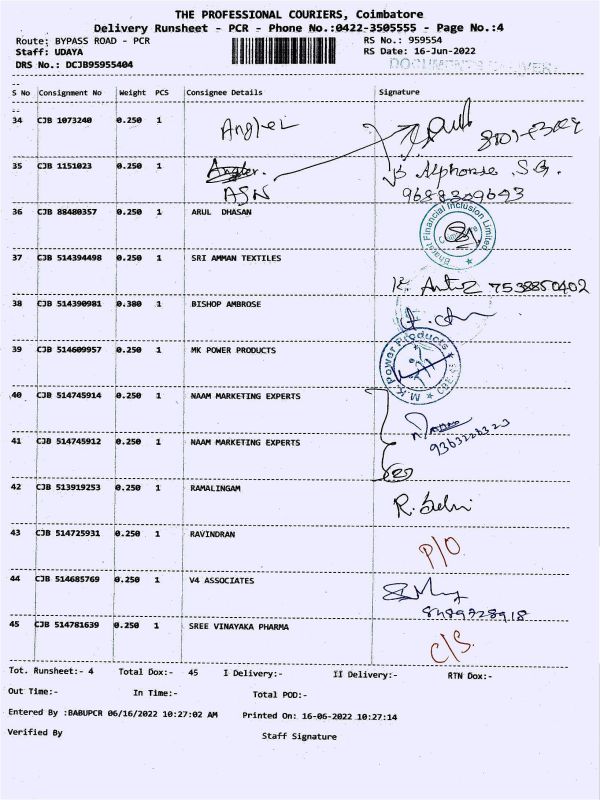 THE PROFESSIONAL COURIERS, Coimbatore
Delivery Runsheet - PCR - Phone No.:0422-3505555 - Page No.:4
Route: BYPASS ROAD - PCR RS No.: 959554
Staff: UDAYA RS Date: 16-Jun-2022
DRS No.: DCJB95955404
S No Consignment No Weight PCS Consignee Details Signature
34 CJB 1073240 0.250 1 Angler
35 CJB 1151023 0.250 1 Angler. Alphonse .S.G.
ASN 9688309693
36 CJB 88480357 0.250 1 ARUL DHASAN
Bharat Financial Inclusion Limited
37 CJB 514394498 0.250 1 SRI AMMAN TEXTILES
7538850402
38 CJB 514390981 0.380 1 BISHOP AMBROSE
39 CJB 514609957 0.250 1 MK POWER PRODUCTS
M.K. Power Products
40 CJB 514745914 0.250 1 NAAM MARKETING EXPERTS
41 CJB 514745912 0.250 1 NAAM MARKETING EXPERTS
42 CJB 513919253 0.250 1 RAMALINGAM
43 CJB 514725931 0.250 1 RAVINDRAN P/O
44 CJB 514685769 0.250 1 V4 ASSOCIATES
8489728918
45 CJB 514781639 0.250 1 SREE VINAYAKA PHARMA C/S.
Tot. Runsheet:- 4 Total Dox:- 45 I Delivery:- II Delivery:- RTN Dox:-
Out Time:- In Time:- Total POD:-
Entered By :BABUPCR 06/16/2022 10:27:02 AM Printed On: 16-06-2022 10:27:14
Verified By Staff Signature